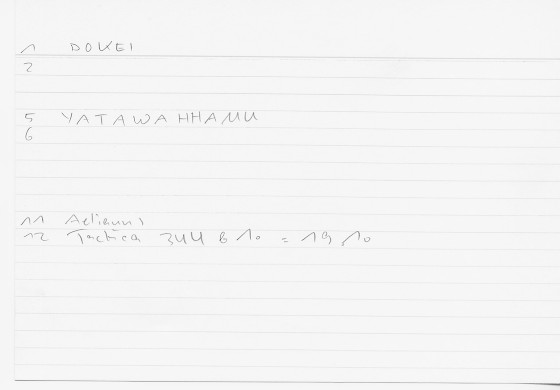 1 DOKEI
2
5 YATAWAHHAMU
6
11 Aelianus
12 Tactica 344 B 10 = 19,10